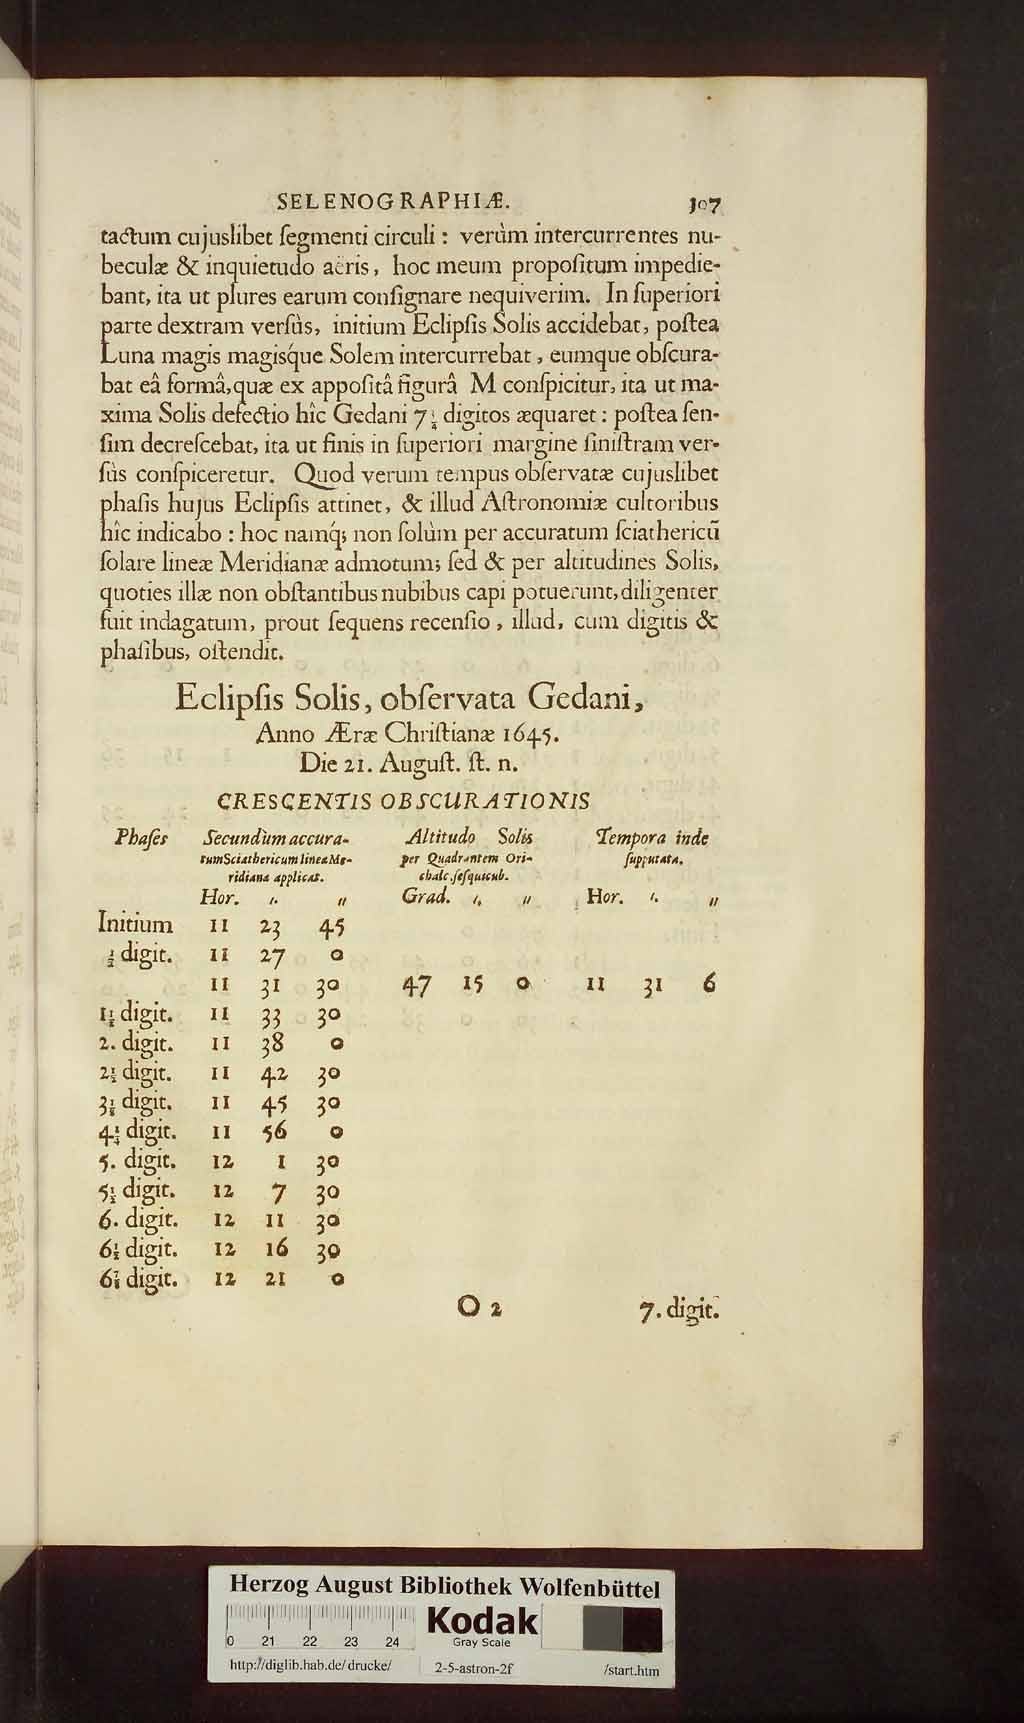 SELENOGRAPHIÆ. 107
tactum cujuslibet ſegmenti circuli : verùm intercurrentes nu-
beculæ & inquietudo aëris, hoc meum propoſitum impedie-
bant, ita ut plures earum conſignare nequiverim. In ſuperiori
parte dextram verſùs, initium Eclipſis Solis accidebat, poſtea
Luna magis magisq́ue Solem intercurrebat, eumque obſcura-
bat eâ formâ, quæ ex appoſitâ figurâ M conſpicitur, ita ut ma-
xima Solis defectio hîc Gedani 7¼ digitos æquaret : poſtea ſen-
ſim decreſcebat, ita ut finis in ſuperiori margine ſiniſtram ver-
ſùs conſpiceretur. Quod verum tempus obſervatæ cujuslibet
phaſis hujus Eclipſis attinet, & illud Aſtronomiæ cultoribus
hîc indicabo : hoc namq́; non ſolùm per accuratum ſciathericū
ſolare lineæ Meridianæ admotum; ſed & per altitudines Solis,
quoties illæ non obſtantibus nubibus capi potuerunt, diligenter
fuit indagatum, prout ſequens recenſio, illud, cum digitis &
phaſibus, oſtendit.
Eclipſis Solis, obſervata Gedani,
Anno Æræ Chriſtianæ 1645.
Die 21. Auguſt. ſt. n.
CRESCENTIS OBSCURATIONIS
Phaſes Secundùm accura- Altitudo Solis Tempora inde
tum Sciathericum lineæ Me- per Quadrantem Ori- ſupputata.
ridianæ applicat. chalc. ſeſquicub.
Hor. ′. ″ Grad. ′. ″ Hor. ′. ″
Initium 11 23 45
½ digit. 11 27 0
11 31 30 47 15 0 11 31 6
1½ digit. 11 33 30
2. digit. 11 38 0
2½ digit. 11 42 30
3⅛ digit. 11 45 30
4¼ digit. 11 56 0
5. digit. 12 1 30
5½ digit. 12 7 30
6. digit. 12 11 30
6½ digit. 12 16 30
6⅞ digit. 12 21 0
O 2 7. digit.
Herzog August Bibliothek Wolfenbüttel
0 21 22 23 24
Kodak
Gray Scale
http://diglib.hab.de/drucke/ 2-5-astron-2f /start.htm